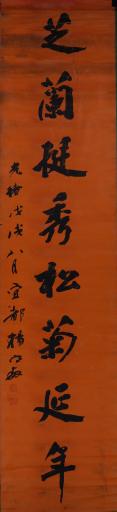 芝蘭挺秀松菊延年
光緒戊戌八月宜都楊守敬